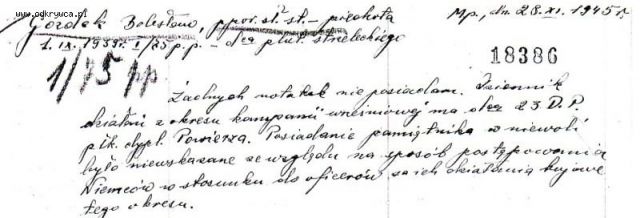 www.odkrywca.pl
Gozdek Bolesław, ppor. sł. st. – piechota
Mp., dn. 28.XI.1945 r.
1.IX.1939 r. I/75 p.p. – dca plut. strzeleckiego
18386
1/75 pp
Żadnych notatek nie posiadam. Dziennik
działań z okresu kampanii wrześniowej ma dca 23 D.P.
płk. dypl. Powierza. Posiadanie pamiętnika w niewoli
było niewskazane ze względu na sposób postępowania
Niemców w stosunku do oficerów za ich działania
tego okresu.